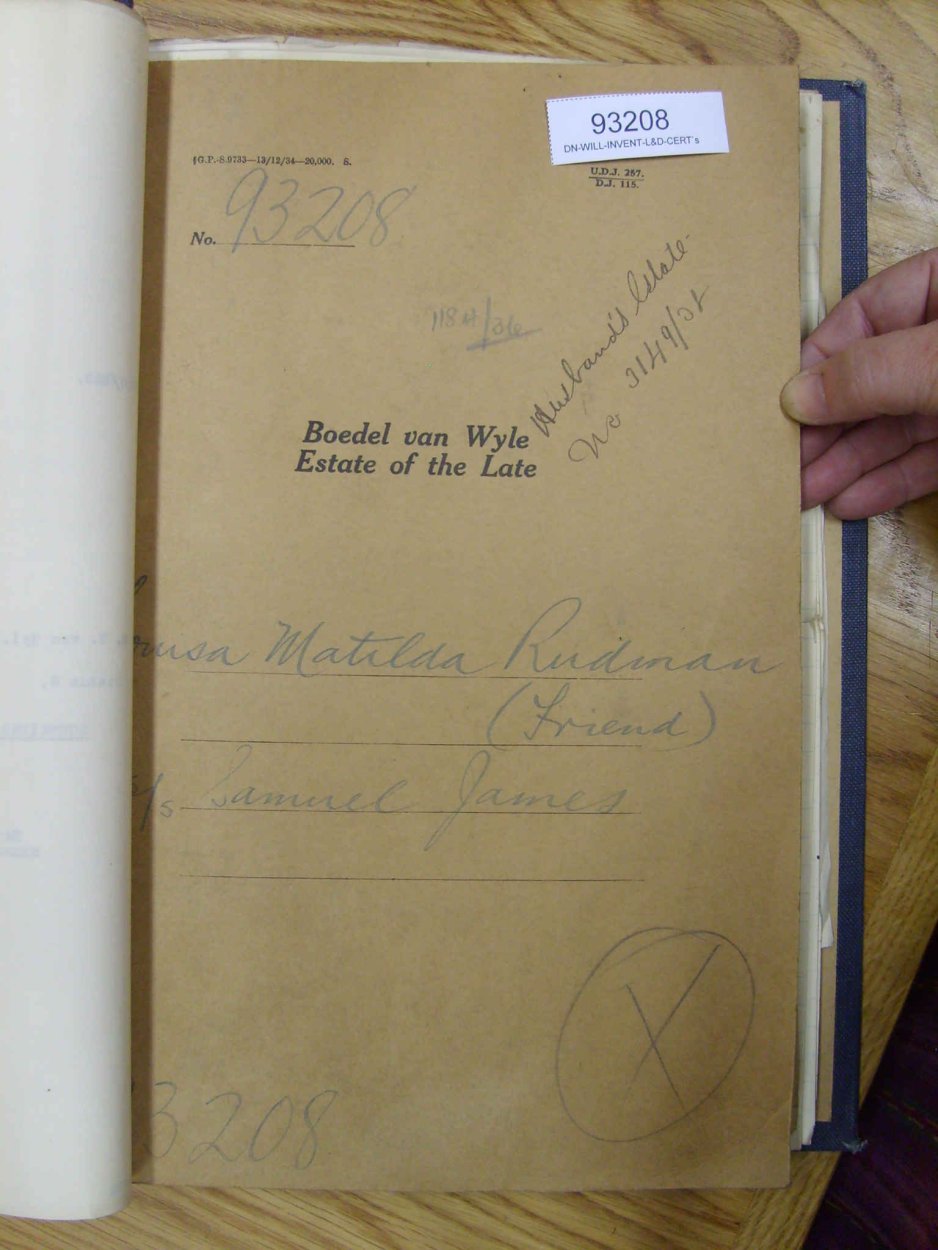 93208
DN-WILL-INVENT-L&D-CERT's
G.P.-S.9733—13/12/34—20,000. S.
U.D.J. 287.
D.J. 115.
No. 93208
Husband's Estate
No 3149/
Boedel van Wyle
Estate of the Late
Matilda Rudman
(Friend)
Samuel James
3208